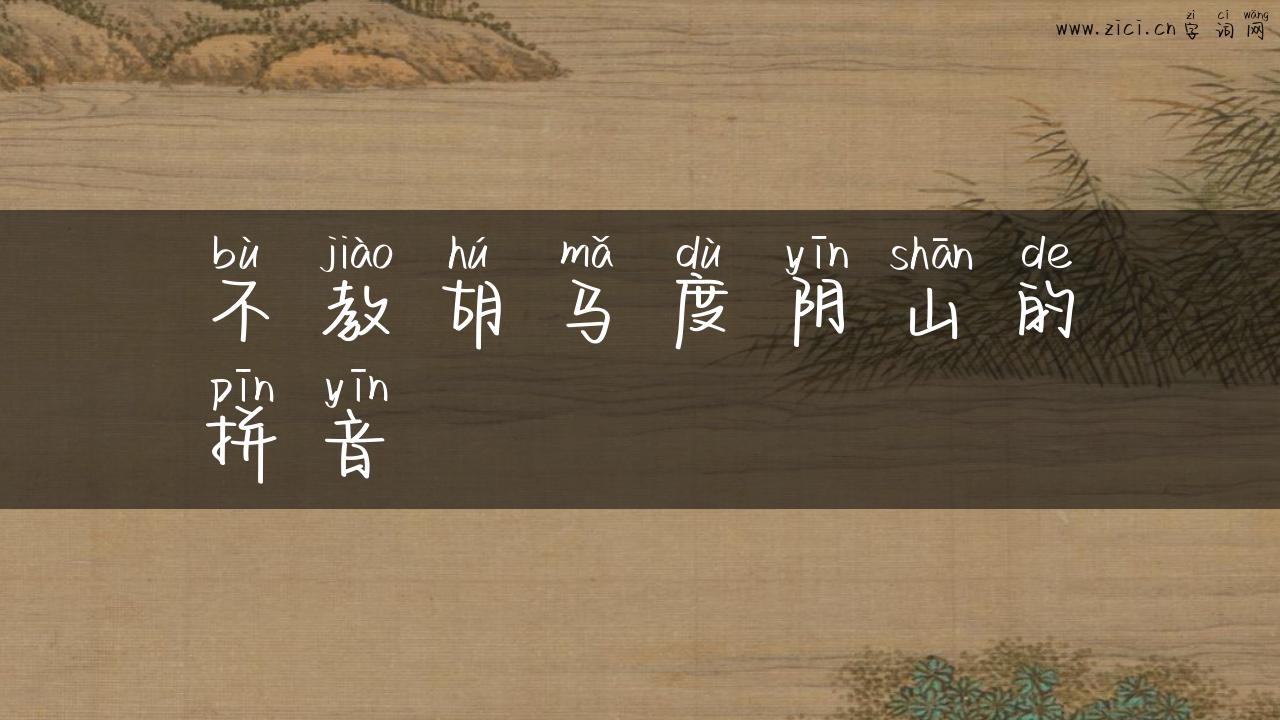 zì cí wǎng
www.zici.cn字词网
bù jiào hú mǎ dù yīn shān de
不教胡马度阴山的
pīn yīn
拼音